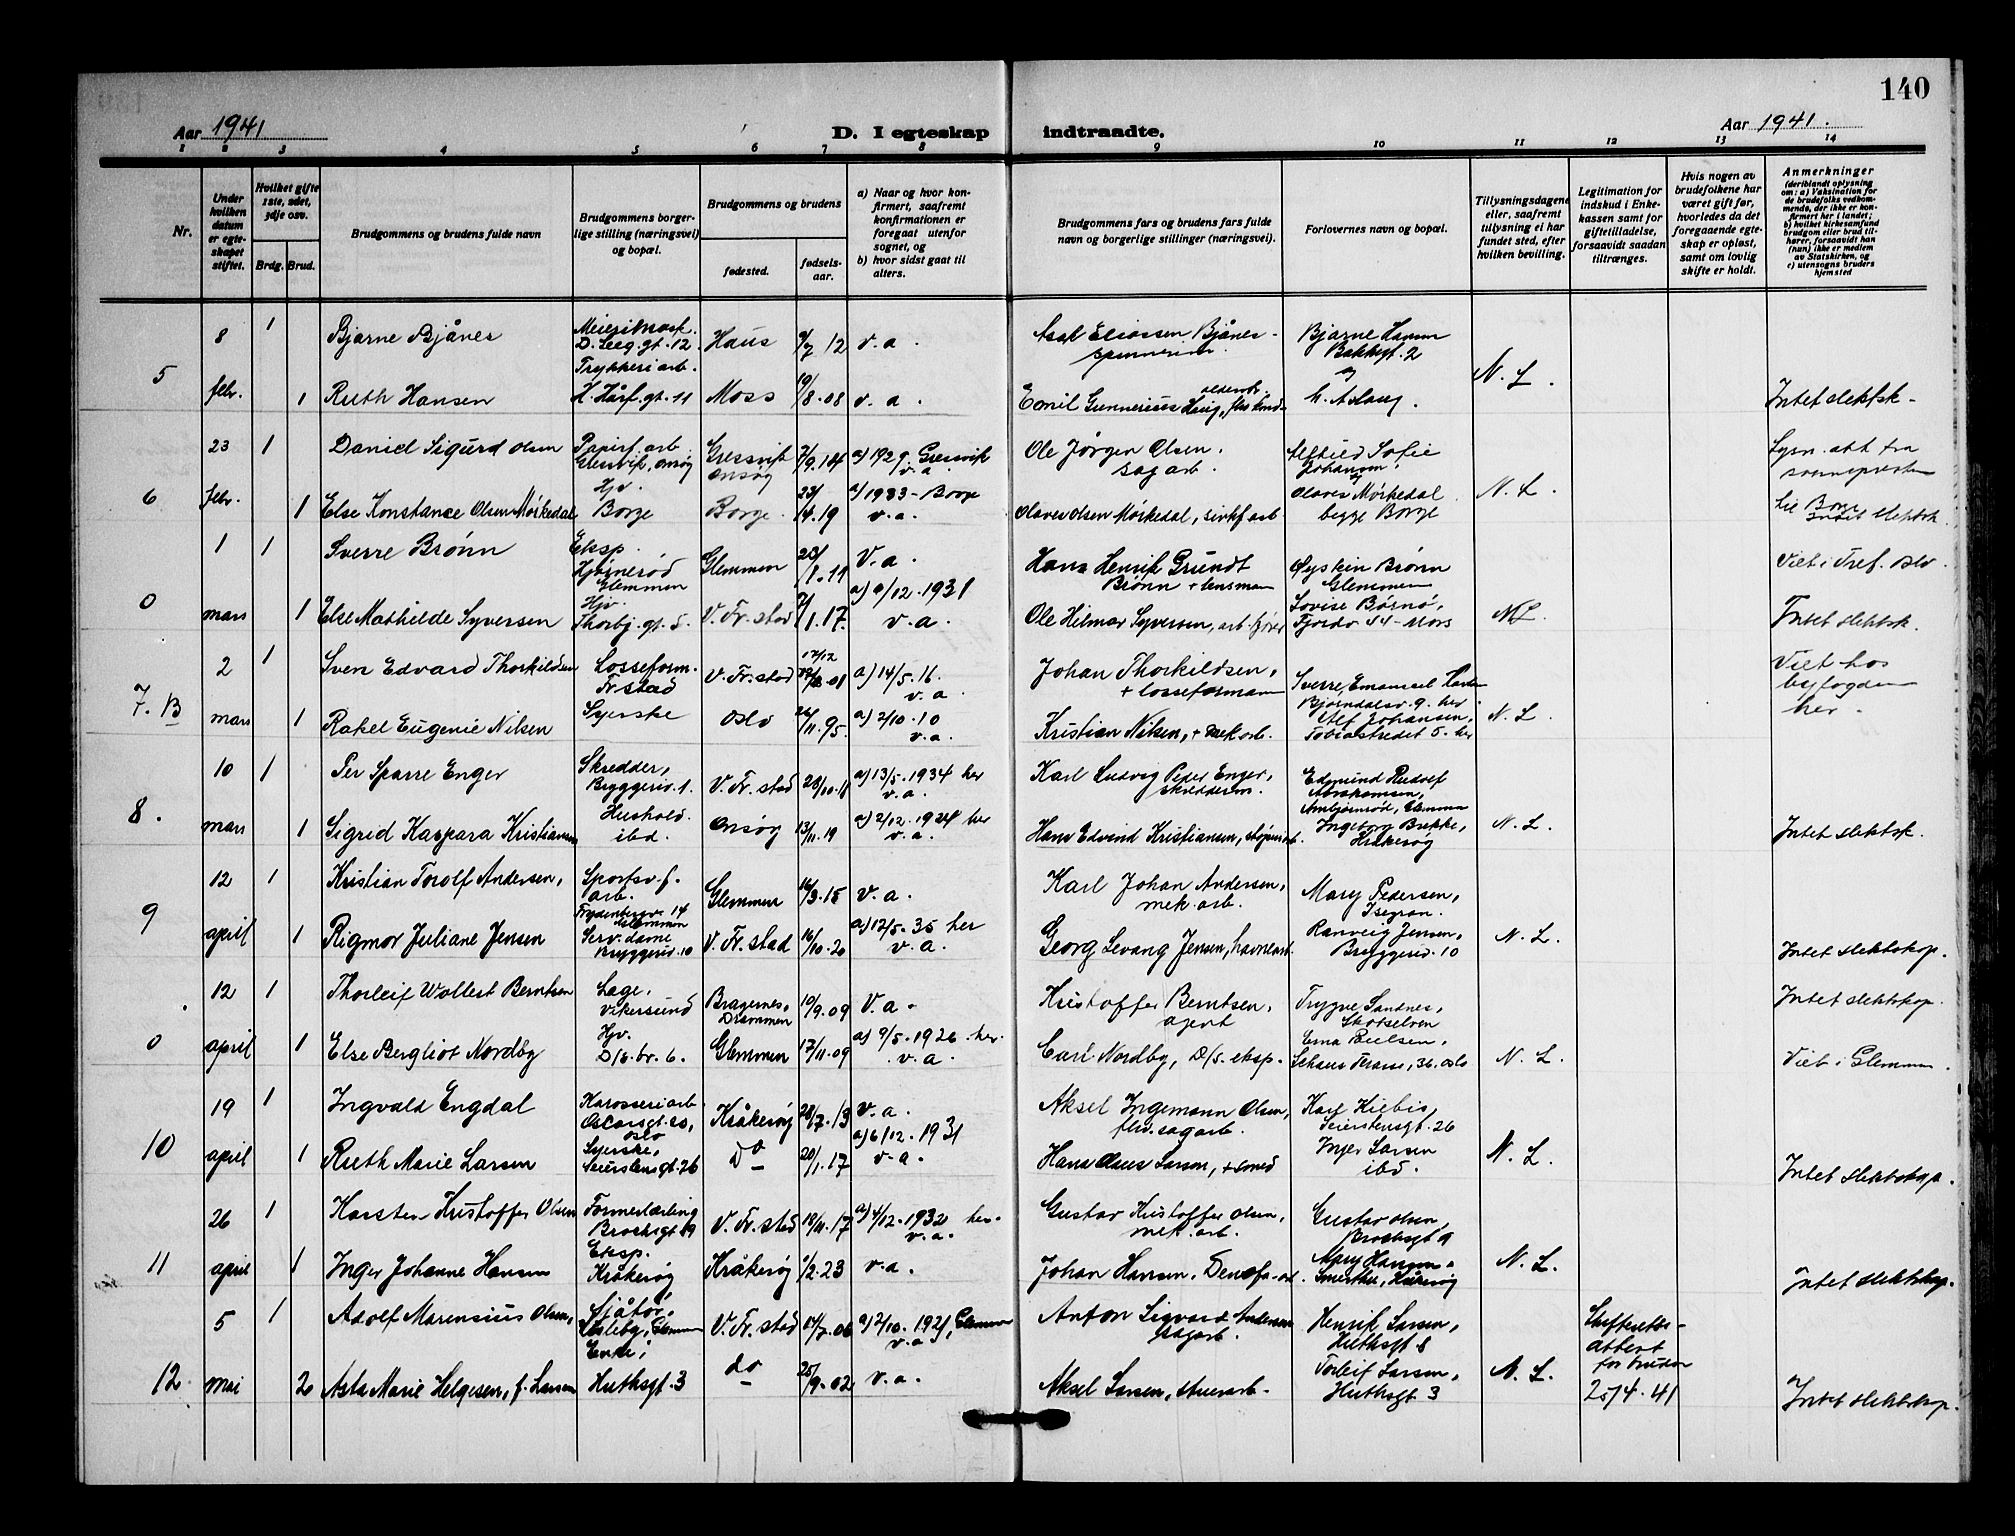 140
Aar 1941
D. I egteskap indtraadte.
Aar 1941.
1 2 3 4 5 6 7 8 9 10 11 12 13 14
Nr.
Under hvilken datum er egteskapet stiftet.
Hvilket gifte 1ste, 2det, 3dje osv.
Brdg. Brud.
Brudgommens og brudens fulde navn
Brudgommens borgerlige stilling (næringsvei) og bopæl.
Brudgommens og brudens
fødested.
fødselsaar.
a) Naar og hvor konfirmert, saafremt konfirmationen er foregaat utenfor sognet, og
b) hvor sidst gaat til alters.
Brudgommens fars og brudens fars fulde navn og borgerlige stillinger (næringsvei).
Forlovernes navn og bopæl.
Tillysningsdagene eller, saafremt tillysning ei har fundet sted, efter hvilken bevilling.
Legitimation for indskud i Enkekassen samt for giftetilladelse, forsaavidt saadan tiltrænges.
Hvis nogen av brudefolkene har været gift før, hvorledes da det foregaaende egteskap er opløst, samt om lovlig skifte er holdt.
Anmerkninger
(deriblandt oplysning om: a) Vaksination for de brudefolks vedkommende, der ikke er konfirmert her i landet; b) hvilket kirkesamfund brudgom eller brud tilhører, forsaavidt han (hun) ikke er medlem av Statskirken, og c) utensogns bruders hjemsted
5
8 febr. 1 Bjarne Bjånes Meierimask. D. Leeg. gt. 12 Haus 9/7 12 v. a. Isak Eliassen Bjånes Bjarne Hansen Bakkegt. 2
1 Ruth Hansen Trykkeriarb. H. Hårf. gt. 11 Moss 19/8.08 v. a. Emil Gunnerius Haug, h. Aslaug. N. L. Intet slektsk.
6
23 febr. 1 Daniel Sigurd Olsen Papirf. arb. Gressvik, Onsøy Gressvik Onsøy 7/9.14 a) 1929. Gressvik v. a. Ole Jørgen Olsen. sagarb. Sofie Johansen,
1 Else Konstance Olsen Mørkedal Hjv. Borge Borge 23/ 14.19 a) 1933 - Borge v. a. Olaves Olsen Mørkedal, Olaves Mørkedal begge Borge N. L. Intet slektsk.
0
1 mars 1 Sverre Brønn Eksp. Hjørnerød Glemmen Glemmen 23/1.11 V. a. Hans Henrik Grundt Brønn + lensman Øystein Brønn Glemmen Viet i Tref. Oslo.
1 Else Mathilde Syversen Hjv. Thorbj. gt. 5. V. Fr. stad 7/1.17. a) 9/12.1931 v. a. Ole Hilmar Syversen, Lovise Børnø, N.L. Intet slektsk.
7. B
2 mars 1 Sven Edvard Thorkildsen Losseform. Fr. stad V. Fr. stad 17/12 01 a) 14/5.16. v. a. Johan Thorkildsen, + losseformann Sverre Emanuel Bjørndalsv. 9. her Viet hos byfogden her.
1 Rakel Eugenie Nilsen Syerske Oslo 26/11.95. a) 2/10.10 v. a. Kristian Nilsen, + mek arb. Alf Johansen, Tobiastredet 5. her N. L.
8.
10 mars 1 Per Sparre Enger Skredder, Bryggeriv. 1. V. Fr. stad 28/10.11 a) 13/5.1934 her v. a. Karl Ludvig Peder Enger, skredderm. Edmund Rudolf Abrahamsen, Ambjørnrød, Glemmen
1 Sigrid Kaspara Kristiansen Hushold. ibd. Onsøy 13/11.19 a) 2/12.1924 her v. a. Hans Edvind Kristiansen, Ingeborg Brekke, Kråkerøy N. L. Intet slektsk.
9
12 april 1 Kristian Torolf Andersen, Sportsv. f. arb. Glemmen Glemmen 16/3.15 v. a. Karl Johan Andersen, mek. arb. Mary Pedersen, Isegran.
1 Rigmor Juliane Jensen Serv. dame Bryggeriv. 10 V. Fr. stad 16/10.20 a) 12/5.35 her v. a. Georg Levang Jensen, havnearb. Ranveig Jensen, Bryggeriv. 10 N. L. Intet slektskap.
0
12 april 1 Thorleif Wollest Berntsen Lage, Vikersund Bragernes, Drammen 19/9.09 V. a. Kristoffer Berntsen, agent Trygve Sandnes, Skotselven Intet slektskap.
1 Else Bergliot Nordby Hjv. D/6. br. 6. Glemmen 17/11.09 a) 9/5.1926 her. v. a. Carl Nordby, D/S. eksp. Erna Poulsen, Schous Terasse, 36. Oslo N. L. Viet i Glemmen.
10
19 april 1 Ingvald Engdal Karosseriarb. Oscarsgt. 20, Oslo Kråkerøy 28/7.13 v. a. Aksel Ingemann Olsen, flv. sagarb. Karl Kiebis, Seierstensgt. 26
1 Ruth Marie Larsen Syerske, Seierstensgt. 26 Do 20/1.17 a) 6/12.1931 v. a. Hans Claus Larsen, + smed Inger Larsen ibd. N. L. Intet slektskap.
11
26 april 1 Karsten Kristoffer Olsen Formerlærling Brochsgt 19 V. Fr. stad 18/11.17 a) 4/12.1932 her. v. a. Gustav Kristoffer Olsen, mek. arb. Gustav Olsen, Brochsgt 9
1 Inger Johanne Hansen Eksp. Kråkerøy Kråkerøy 1/2.23 v. a. Johan Hansen. Denofa-arb. Mary Hansen, Smertu, Kråkerøy N. L. Intet slektskap.
12
5 mai 1 Adolf Marensius Olsen, Sjåfør, Lisleby, Glemmen V. Fr. stad 14/7.06 a) 2/10.1921, Glemmen v. a. Anton Sigvard Andersen sagarb. Henrik Larsen, Huthsgt 8 Skifteretts-attest for bruden 25/4.41
2 Asta Marie Helgesen, f. Larsen Enke, Huthsgt. 3 do 25/9.02 v. a. Aksel Larsen, stuerarb. Torleif Larsen, Huthsgt 3 N. L. Intet slektskap.